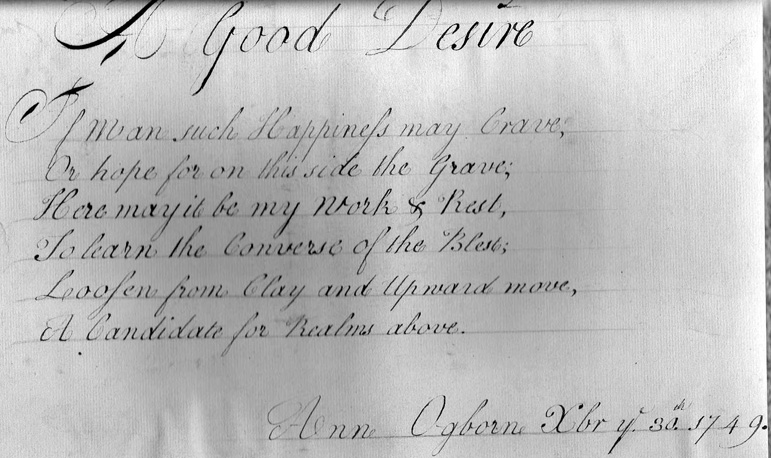 A Good Desire
If Man such Happineſs may Crave,
Or hope for on this side the Grave;
Here may it be my Work & Rest,
To learn the Converse of the Blest;
Looſen from Clay and Upward move,
A Candidate for Realms above.
Anne Ogborne Xbr yͤ 30th 1749.